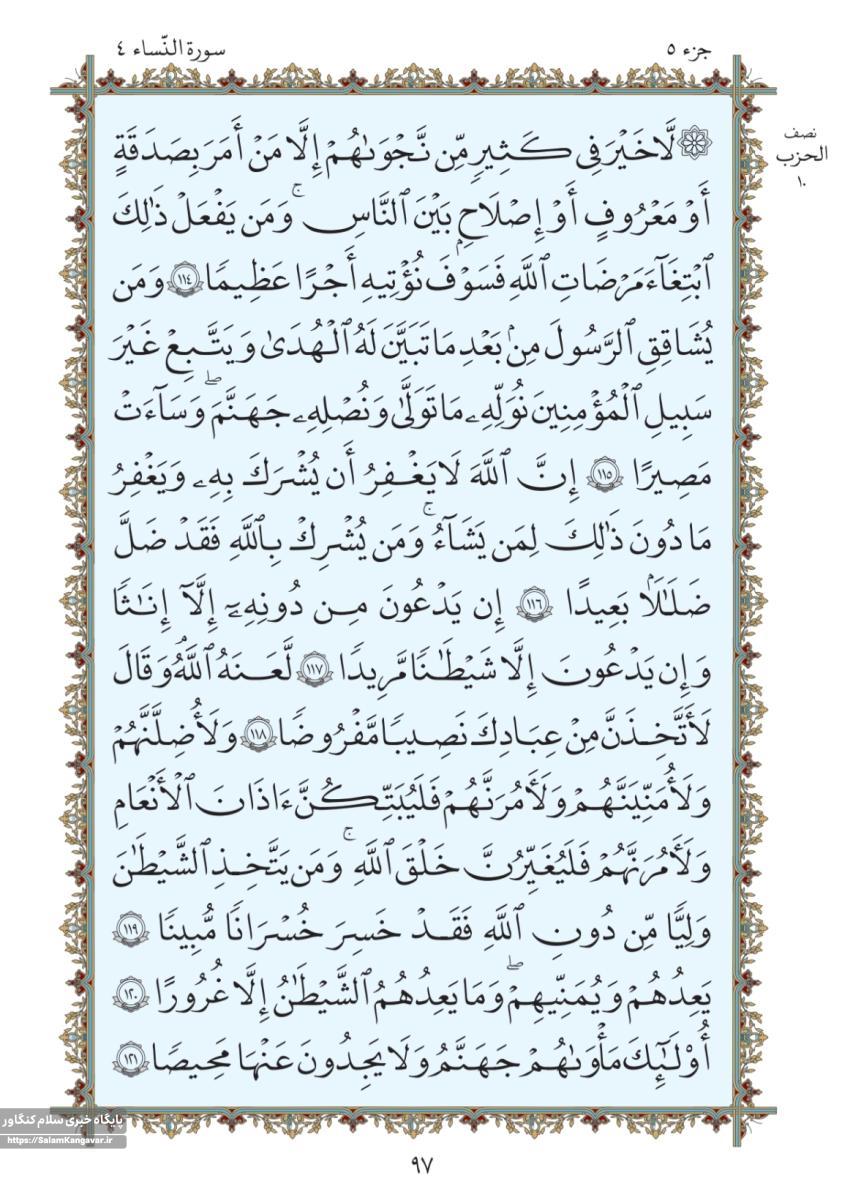 جزء ٥
سورة النّساء ٤
نصف
الحزب
١٠
۞ لَّا خَيْرَ فِي كَثِيرٍ مِّن نَّجْوَىٰهُمْ إِلَّا مَنْ أَمَرَ بِصَدَقَةٍ
أَوْ مَعْرُوفٍ أَوْ إِصْلَٰحٍۭ بَيْنَ ٱلنَّاسِ ۚ وَمَن يَفْعَلْ ذَٰلِكَ
ٱبْتِغَآءَ مَرْضَاتِ ٱللَّهِ فَسَوْفَ نُؤْتِيهِ أَجْرًا عَظِيمًا ١١٤ وَمَن
يُشَاقِقِ ٱلرَّسُولَ مِنۢ بَعْدِ مَا تَبَيَّنَ لَهُ ٱلْهُدَىٰ وَيَتَّبِعْ غَيْرَ
سَبِيلِ ٱلْمُؤْمِنِينَ نُوَلِّهِۦ مَا تَوَلَّىٰ وَنُصْلِهِۦ جَهَنَّمَ ۖ وَسَآءَتْ
مَصِيرًا ١١٥ إِنَّ ٱللَّهَ لَا يَغْفِرُ أَن يُشْرَكَ بِهِۦ وَيَغْفِرُ
مَا دُونَ ذَٰلِكَ لِمَن يَشَآءُ ۚ وَمَن يُشْرِكْ بِٱللَّهِ فَقَدْ ضَلَّ
ضَلَٰلًۢا بَعِيدًا ١١٦ إِن يَدْعُونَ مِن دُونِهِۦٓ إِلَّآ إِنَٰثًا
وَإِن يَدْعُونَ إِلَّا شَيْطَٰنًا مَّرِيدًا ١١٧ لَّعَنَهُ ٱللَّهُ ۘ وَقَالَ
لَأَتَّخِذَنَّ مِنْ عِبَادِكَ نَصِيبًا مَّفْرُوضًا ١١٨ وَلَأُضِلَّنَّهُمْ
وَلَأُمَنِّيَنَّهُمْ وَلَءَامُرَنَّهُمْ فَلَيُبَتِّكُنَّ ءَاذَانَ ٱلْأَنْعَٰمِ
وَلَءَامُرَنَّهُمْ فَلَيُغَيِّرُنَّ خَلْقَ ٱللَّهِ ۚ وَمَن يَتَّخِذِ ٱلشَّيْطَٰنَ
وَلِيًّا مِّن دُونِ ٱللَّهِ فَقَدْ خَسِرَ خُسْرَانًا مُّبِينًا ١١٩
يَعِدُهُمْ وَيُمَنِّيهِمْ ۖ وَمَا يَعِدُهُمُ ٱلشَّيْطَٰنُ إِلَّا غُرُورًا ١٢٠
أُو۟لَٰٓئِكَ مَأْوَىٰهُمْ جَهَنَّمُ وَلَا يَجِدُونَ عَنْهَا مَحِيصًا ١٢١
پایگاه خبری سلام کنگاور
https://SalamKangavar.ir
٩٧